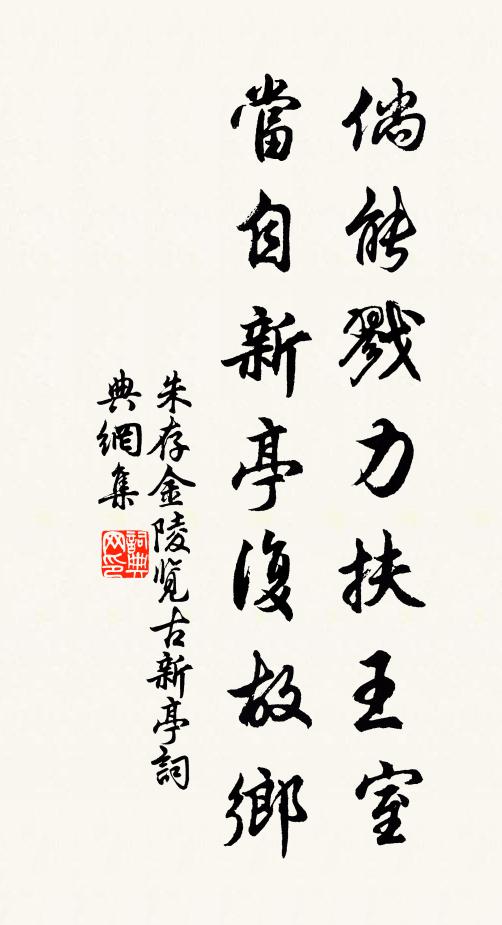 倘能戮力扶王室
當自新亭復故鄉
朱存金陵覽古新亭詞
典網集
詞典网印